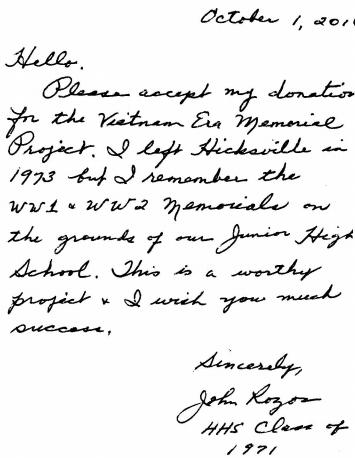 October 1, 201
Hello.
Please accept my donation
for the Vietnam Era Memorial
Project. I left Hicksville in
1973 but I remember the
WW1 & WW2 Memorials on
the grounds of our Junior High
School. This is a worthy
project & I wish you much
success.
Sincerely,
John Rozos
HHS Class of
1971